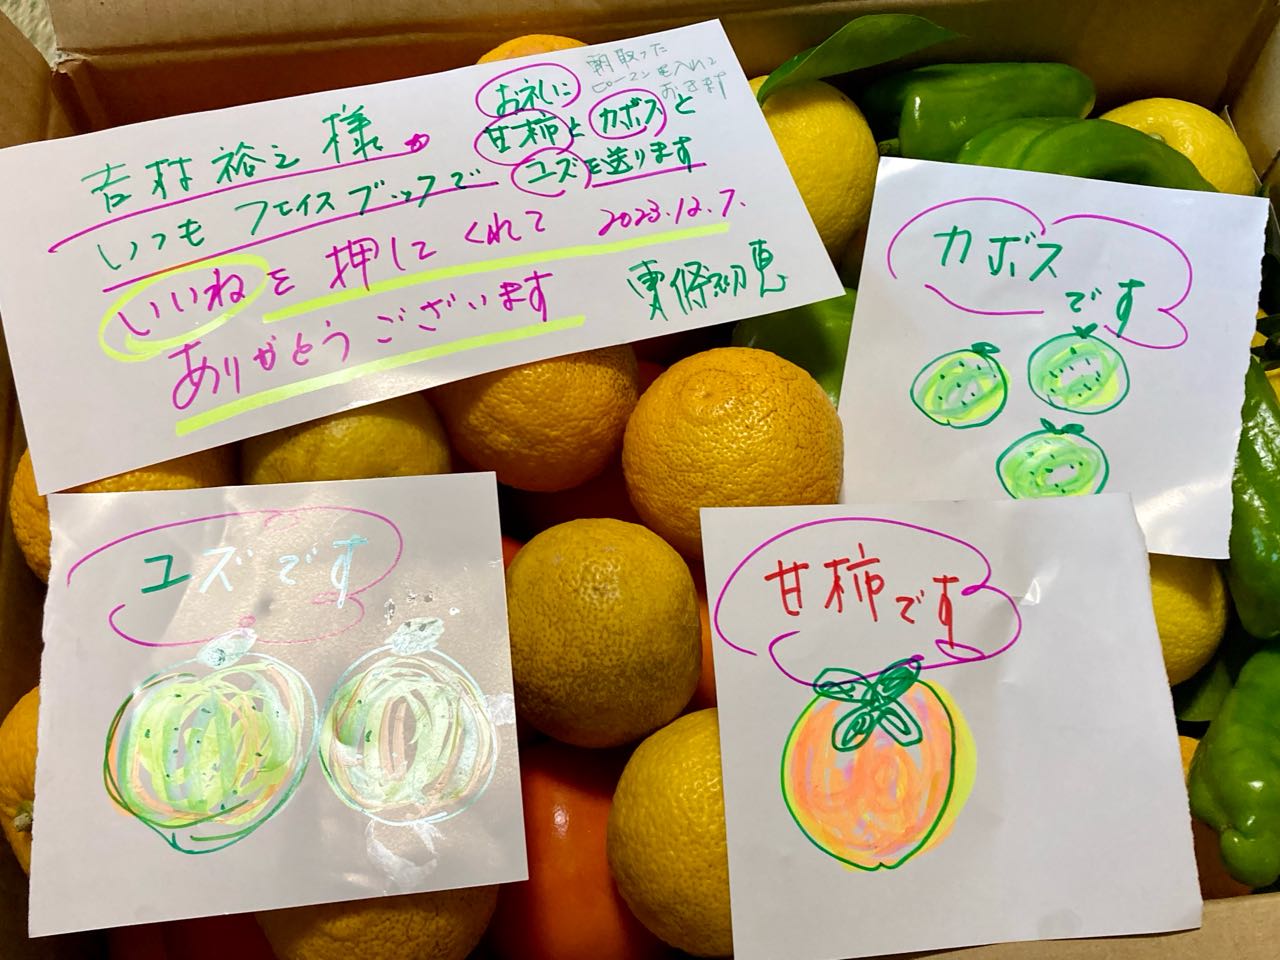 吉村裕之様
いつもフェイスブックで
いいねを押してくれて
ありがとうございます
お礼に
甘柿とカボスと
ユズを送ります
朝取った
ピーマンを入れて
おきます
2023.12.7.
東條初恵
カボス
です
ユズです
甘柿です